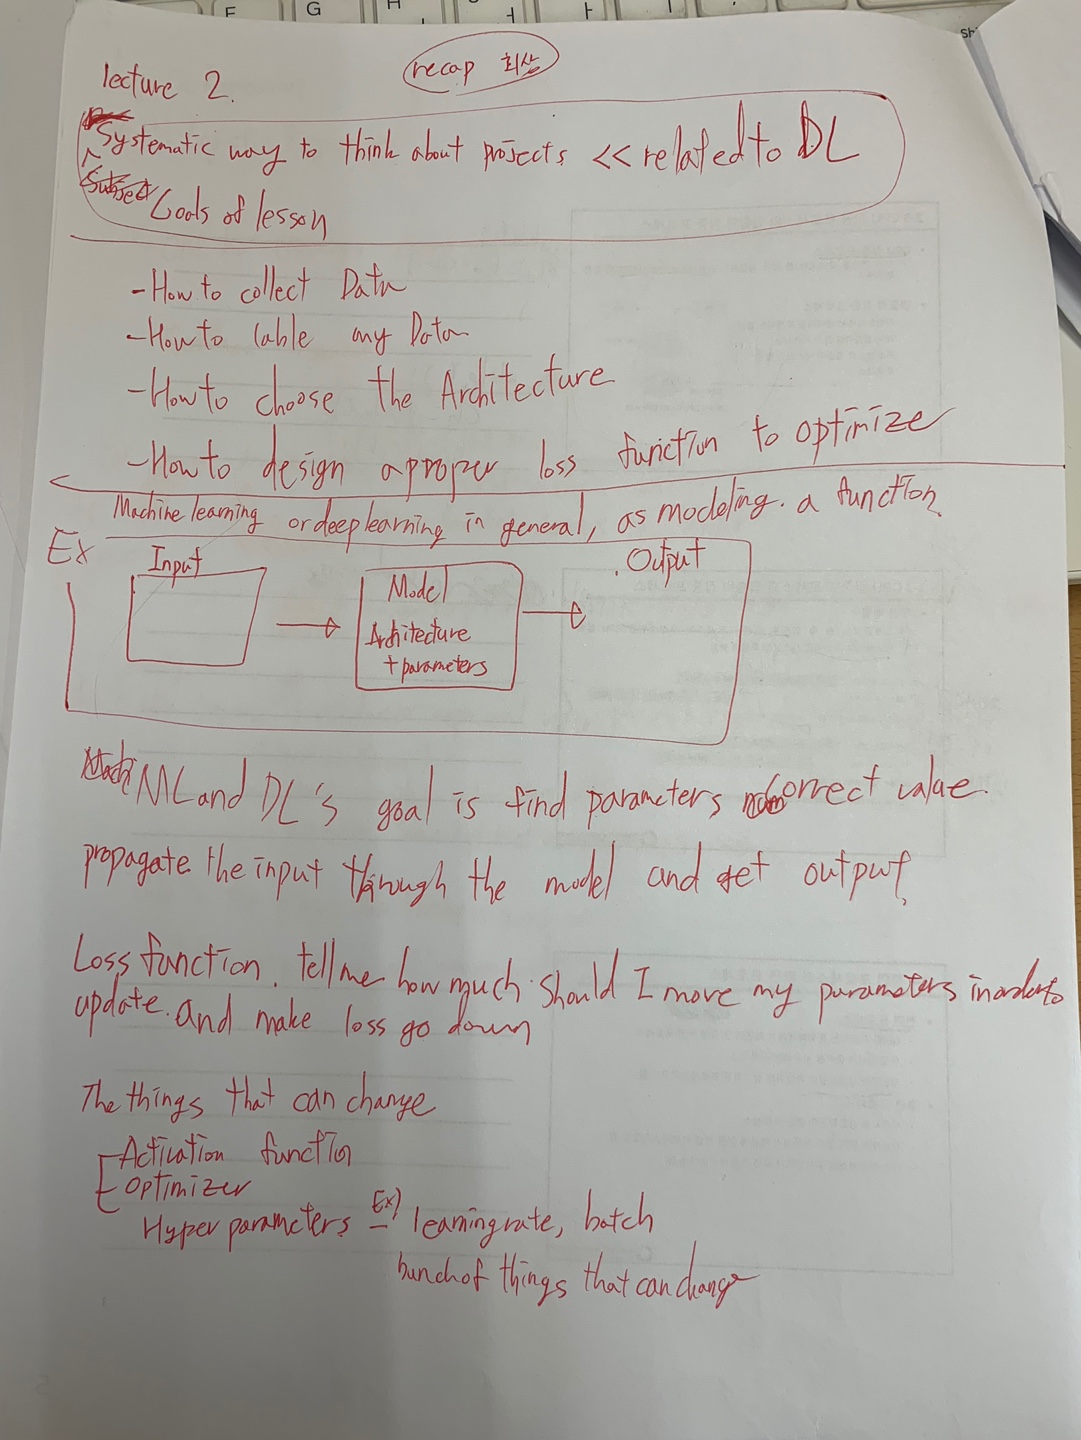 recap 회상
lecture 2.
Systematic way to think about projects << related to DL
Goals of lesson
- How to collect Data
- How to lable my Data
- How to choose the Architecture
- How to design a proper loss function to optimize
Machine learning or deep learning in general, as modeling. a function.
Ex
Input
Model
Architecture
+ parameters
Output
ML and DL's goal is find parameters correct value.
propagate the input through the model and get output.
Loss function. tell me how much should I move my parameters in order to
update. and make loss go down
The things that can change
Activation function
Optimizer
Hyper parameters Ex) learning rate, batch
bunch of things that can change